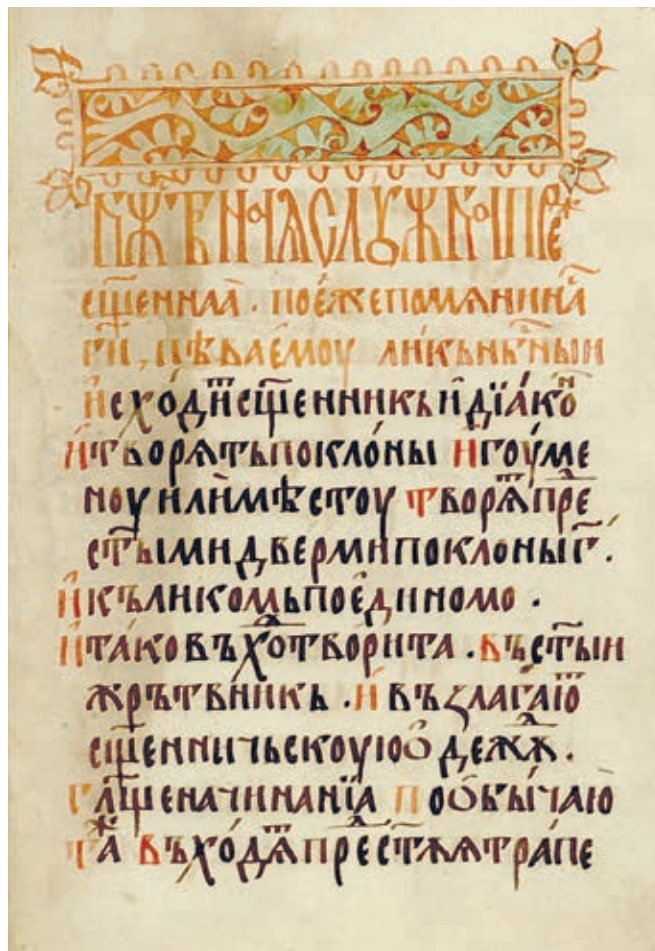 слꙋжба пре
сщ҃еннаа . поеже помѧни на
ги , пѣваемоу
исходѧⷮ сщ҃енникь и дїакѡⷩ
и творѧть поклоны игоуме
ноу или мѣстоу творѧⷮ прѣⷣ
ст҃ыми двермипоклоны г҃ .
и къ ликомь по единомо .
и тако въхоⷣ творита . въ ст҃ыи
жрътвникь . и въꙁлагаюⷮ
сщ҃енничьскоую ѻдежѫ .
гл҃ще начинанїа по обычаю
въходѧⷮ прѣⷣ ст҃ѫѧ трапе